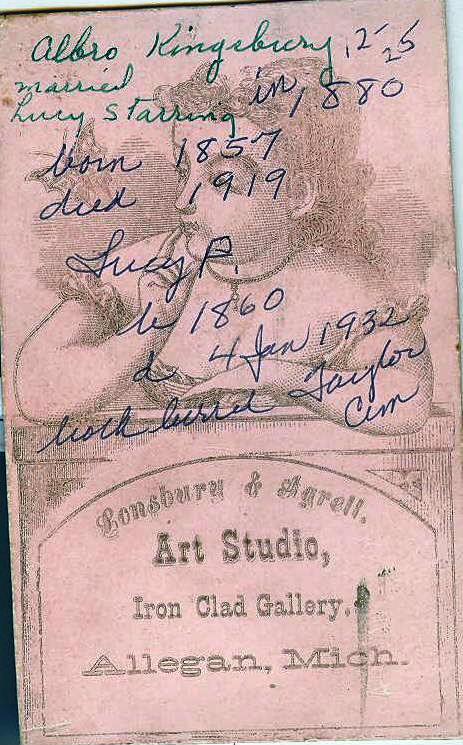 Albro Kingsbury 12-25
married in 1880
Lucy Starring
born 1857
died 1919
Lucy P.
b 1860
d 4 Jan 1932
both buried Taylor
Cem
Lonsbury & Agrell,
Art Studio,
Iron Clad Gallery,
Allegan, Mich.